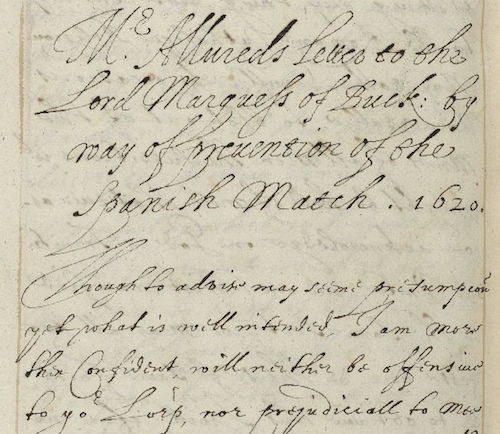 Mr. Allureds letter to the
Lord Marquess of Buck: by
way of prevention of the
Spanish Match . 1620.
Though to advise may seeme presumpcon
yet what is well intended, I am more
then Confident will neither be offensive
to yor Lorp, nor prejudiciall to Mee